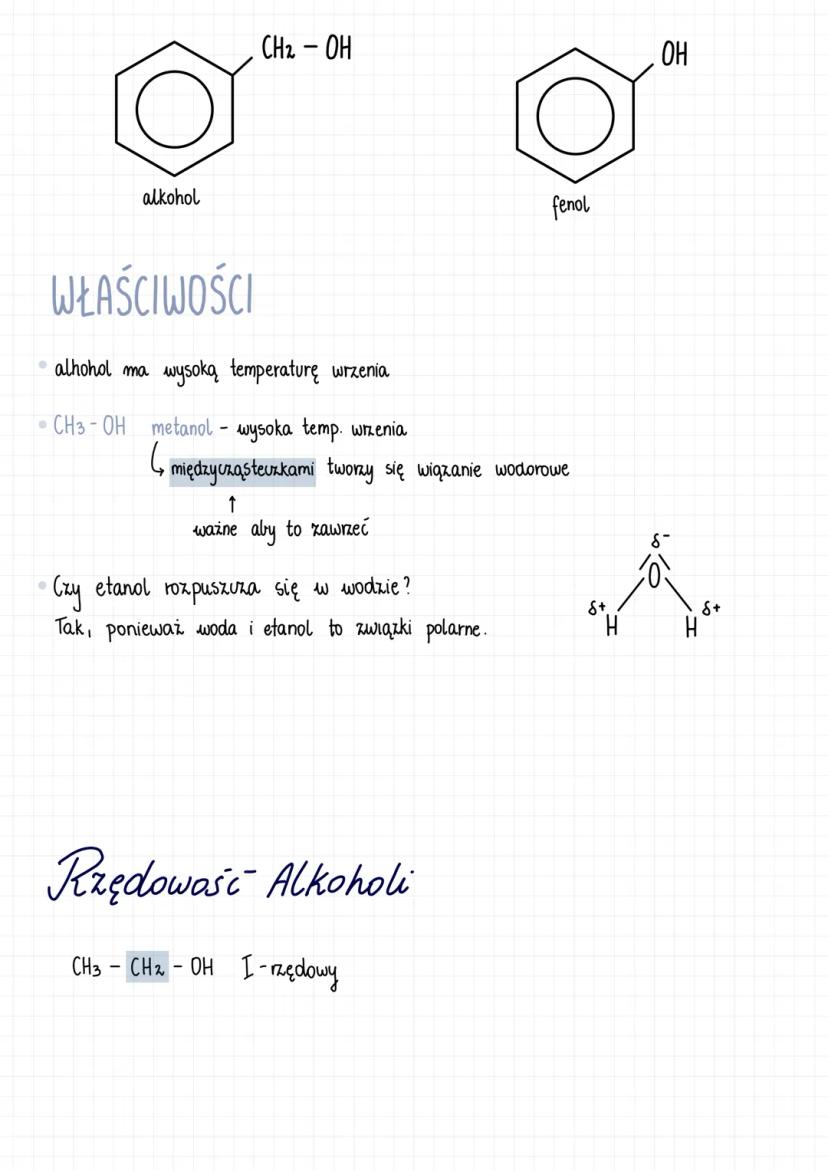 CH2 - OH
OH
alkohol
fenol
WŁAŚCIWOŚCI
• alhohol ma wysoką temperaturę wrzenia
• CH3 - OH metanol - wysoka temp. wrzenia
↳ międzycząsteczkami tworzy się wiązanie wodorowe
↑
ważne aby to zawrzeć
δ-
O
• Czy etanol rozpuszcza się w wodzie?
δ+ H H δ+
Tak, ponieważ woda i etanol to związki polarne.
Rzędowość Alkoholi
CH3 - CH2 - OH I-rzędowy